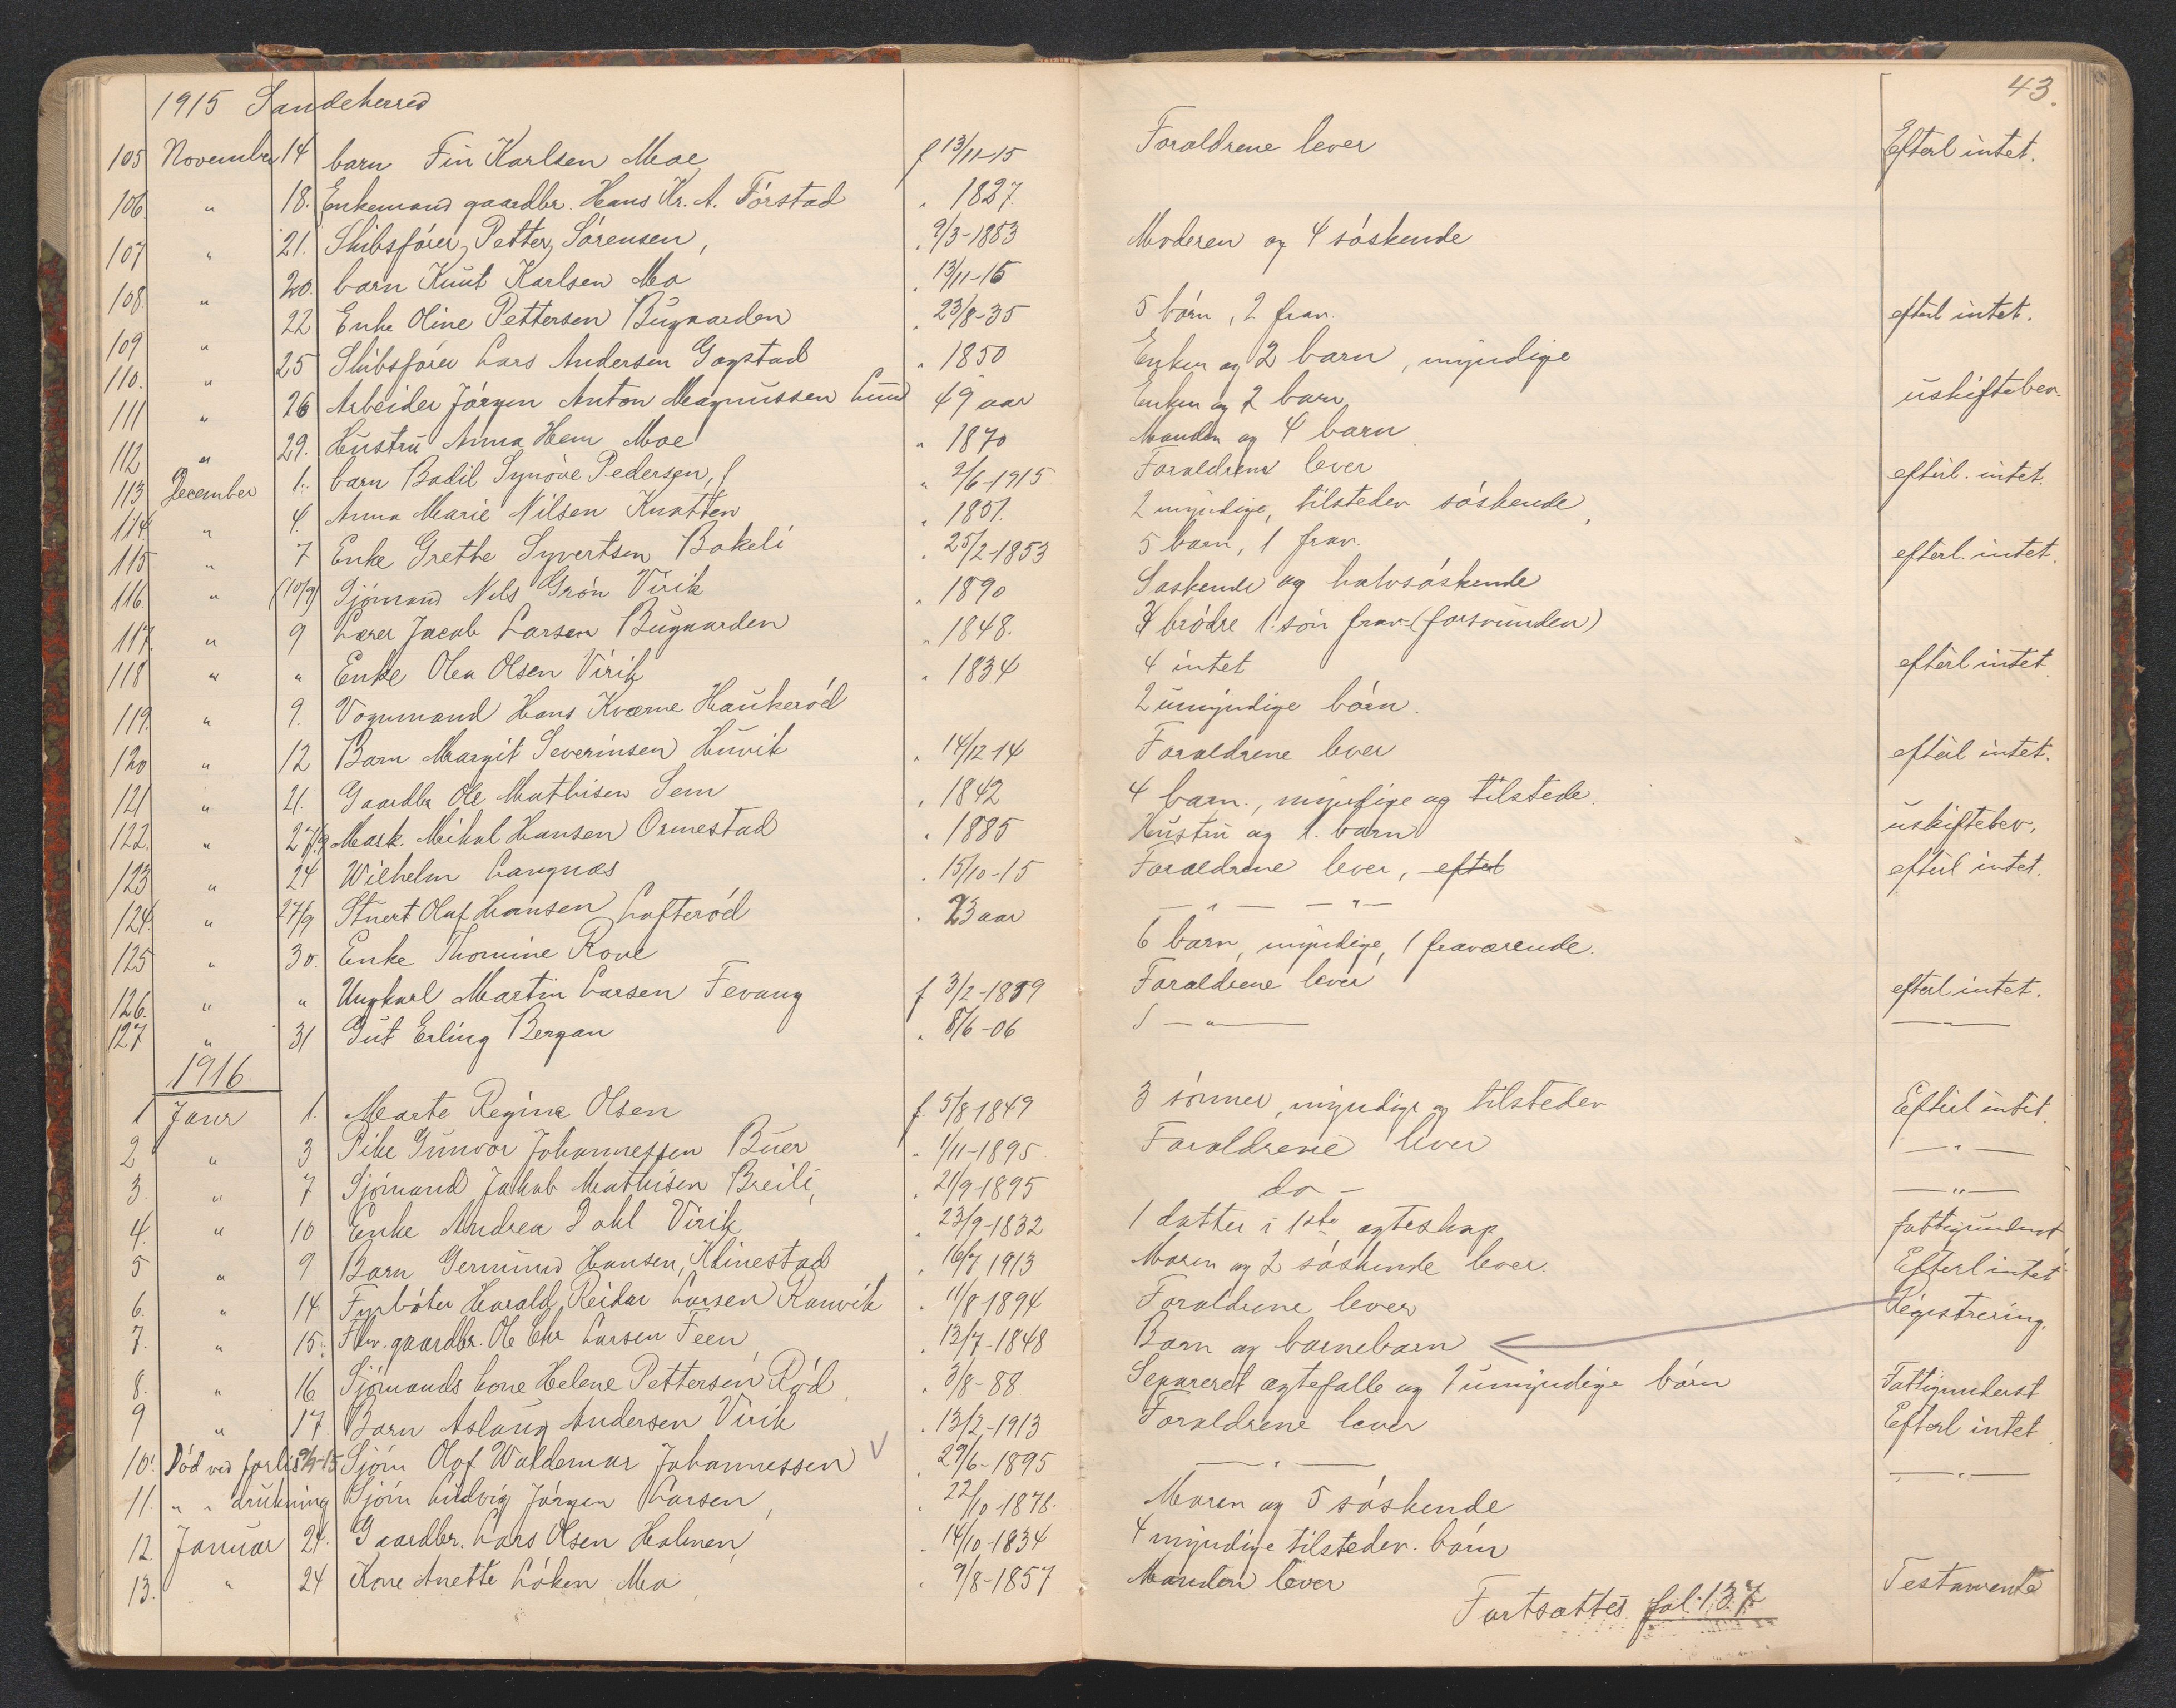 43.
1915 Sandeherred
105 November 14 barn Fin Karlsen Moe f 13/11-15 Forældrene lever Efterl intet.
106 " 18. Enkemand gaardbr. Hans Kr. A. Förstad " 1827.
107 " 21. Skibsförer Petter Sörensen, " 9/3-1853 Moderen og 4 söskende
108. " 20. barn Knut Karlsen Mo " 13/11-15
109 " 22 Enke Oline Pettersen Bugaarden " 23/8-35 5 börn, 2 frav. efterl intet.
110. " 25 Skibsförer Lars Andersen Gogstad " 1850 Enken og 2 barn, myndige
111 " 26 Arbeider Jörgen Anton Magnussen Lund 49 aar Enken og 2 barn uskiftebev.
112 " 29. Hustru Anna Hem Moe " 1870 Manden og 4 barn
113 December 1. barn Bodil Synöve Pedersen, " 9/6-1915 Forældrene lever efterl. intet.
114. " 4. Anna Marie Nilsen Knatten " 1851. 2 myndige, tilstedev söskende,
115 " 7 Enke Grethe Syvertsen Bakeli " 25/2-1853 5 barn, 1 frav. efterl. intet.
116. " (10/9) Sjömand Nils Grön Virik " 1890 Söskende og halvsöskende
117. " 9 Lærer Jacob Larsen Bugaarden " 1848. brödre 1 sön frav. (forsvunden)
118 " " Enke Olea Olsen Virik " 1834 4 intet efterl intet.
119. " 9. Vognmand Hans Kværne Haukeröd 2 umyndige börn.
120 " 12 Barn Margit Severinsen Huvik " 14/12 14 Forældrene lever efterl intet.
121 " 21. Gaardbr Ole Mathisen Sem " 1842 4 barn., myndige og tilstede.
122. " 27/9 Mask. Mikal Hansen Ormestad " 1885 Hustru og 1. barn uskiftebev.
123 " 24 Wilhelm Langnæs " 15/10-15 Forældrene lever, efterl efterl intet.
124. " 27/9 Stuert Oluf Hansen Lofteröd " 23 aar — " — — " —
125 " 30. Enke Thomine Rove 6 barn, myndige, 1 fraværende.
126. " " Ungkarl Martin Larsen Fevang f 3/2-1889 Forældrene lever efterl intet.
127 " 31 Gut Erling Bergan " 8/6-06 — " — — " —
1916
1 Janr 1. Marte Regine Olsen f. 5/8 1849 3 sönner, myndige og tilstedev Efterl intet.
2 " 3 Pike Gunvor Johannessen Buer " 1/11-1895 Forældrene lever — " —
3. " 7 Sjömand Jakob Mathisen Breili, " 21/9-1895 do — — " —
4. " 10 Enke Andrea Dahl Virik " 23/9-1832 1 datter i 1ste ægteskap fattigunderst.
5 " 9 Barn Germund Hansen, Klinestad " 16/7 1913 Moren og 2 söskende lever. Efterl intet
6. " 14. Fyrböter Harald Reidar Larsen Ranvik " 11/8-1894 Forældrene lever
7. " 15. Fhv. gaardbr. Ole Chr Larsen Feen " 13/7-1848 Barn og barnebarn Registrering.
8. " 16 Sjömands kone Helene Pettersen Röd " 3/8-88 Separeret ægtefælle og 2 umyndige börn Fattigunderst
9 " 17. Barn Aslaug Andersen Virik " 13/2-1913 Forældrene lever Efterl intet
10. Död ved forlis Sjöm Olaf Waldemar Johannessen " 29/6-1895 — " — — " —
11. " " drukning Sjöm Ludvig Jörgen Larsen, " 22/10-1878. Moren og 5 söskende
12 Januar 24. Gaardbr. Lars Olsen Holmen, " 14/10-1834 4 myndige tilstedev. börn
13. " 24 Kone Anette Löken Mo " 9/8-1857 Manden lever Testamente
Fortsættes. fol. 137